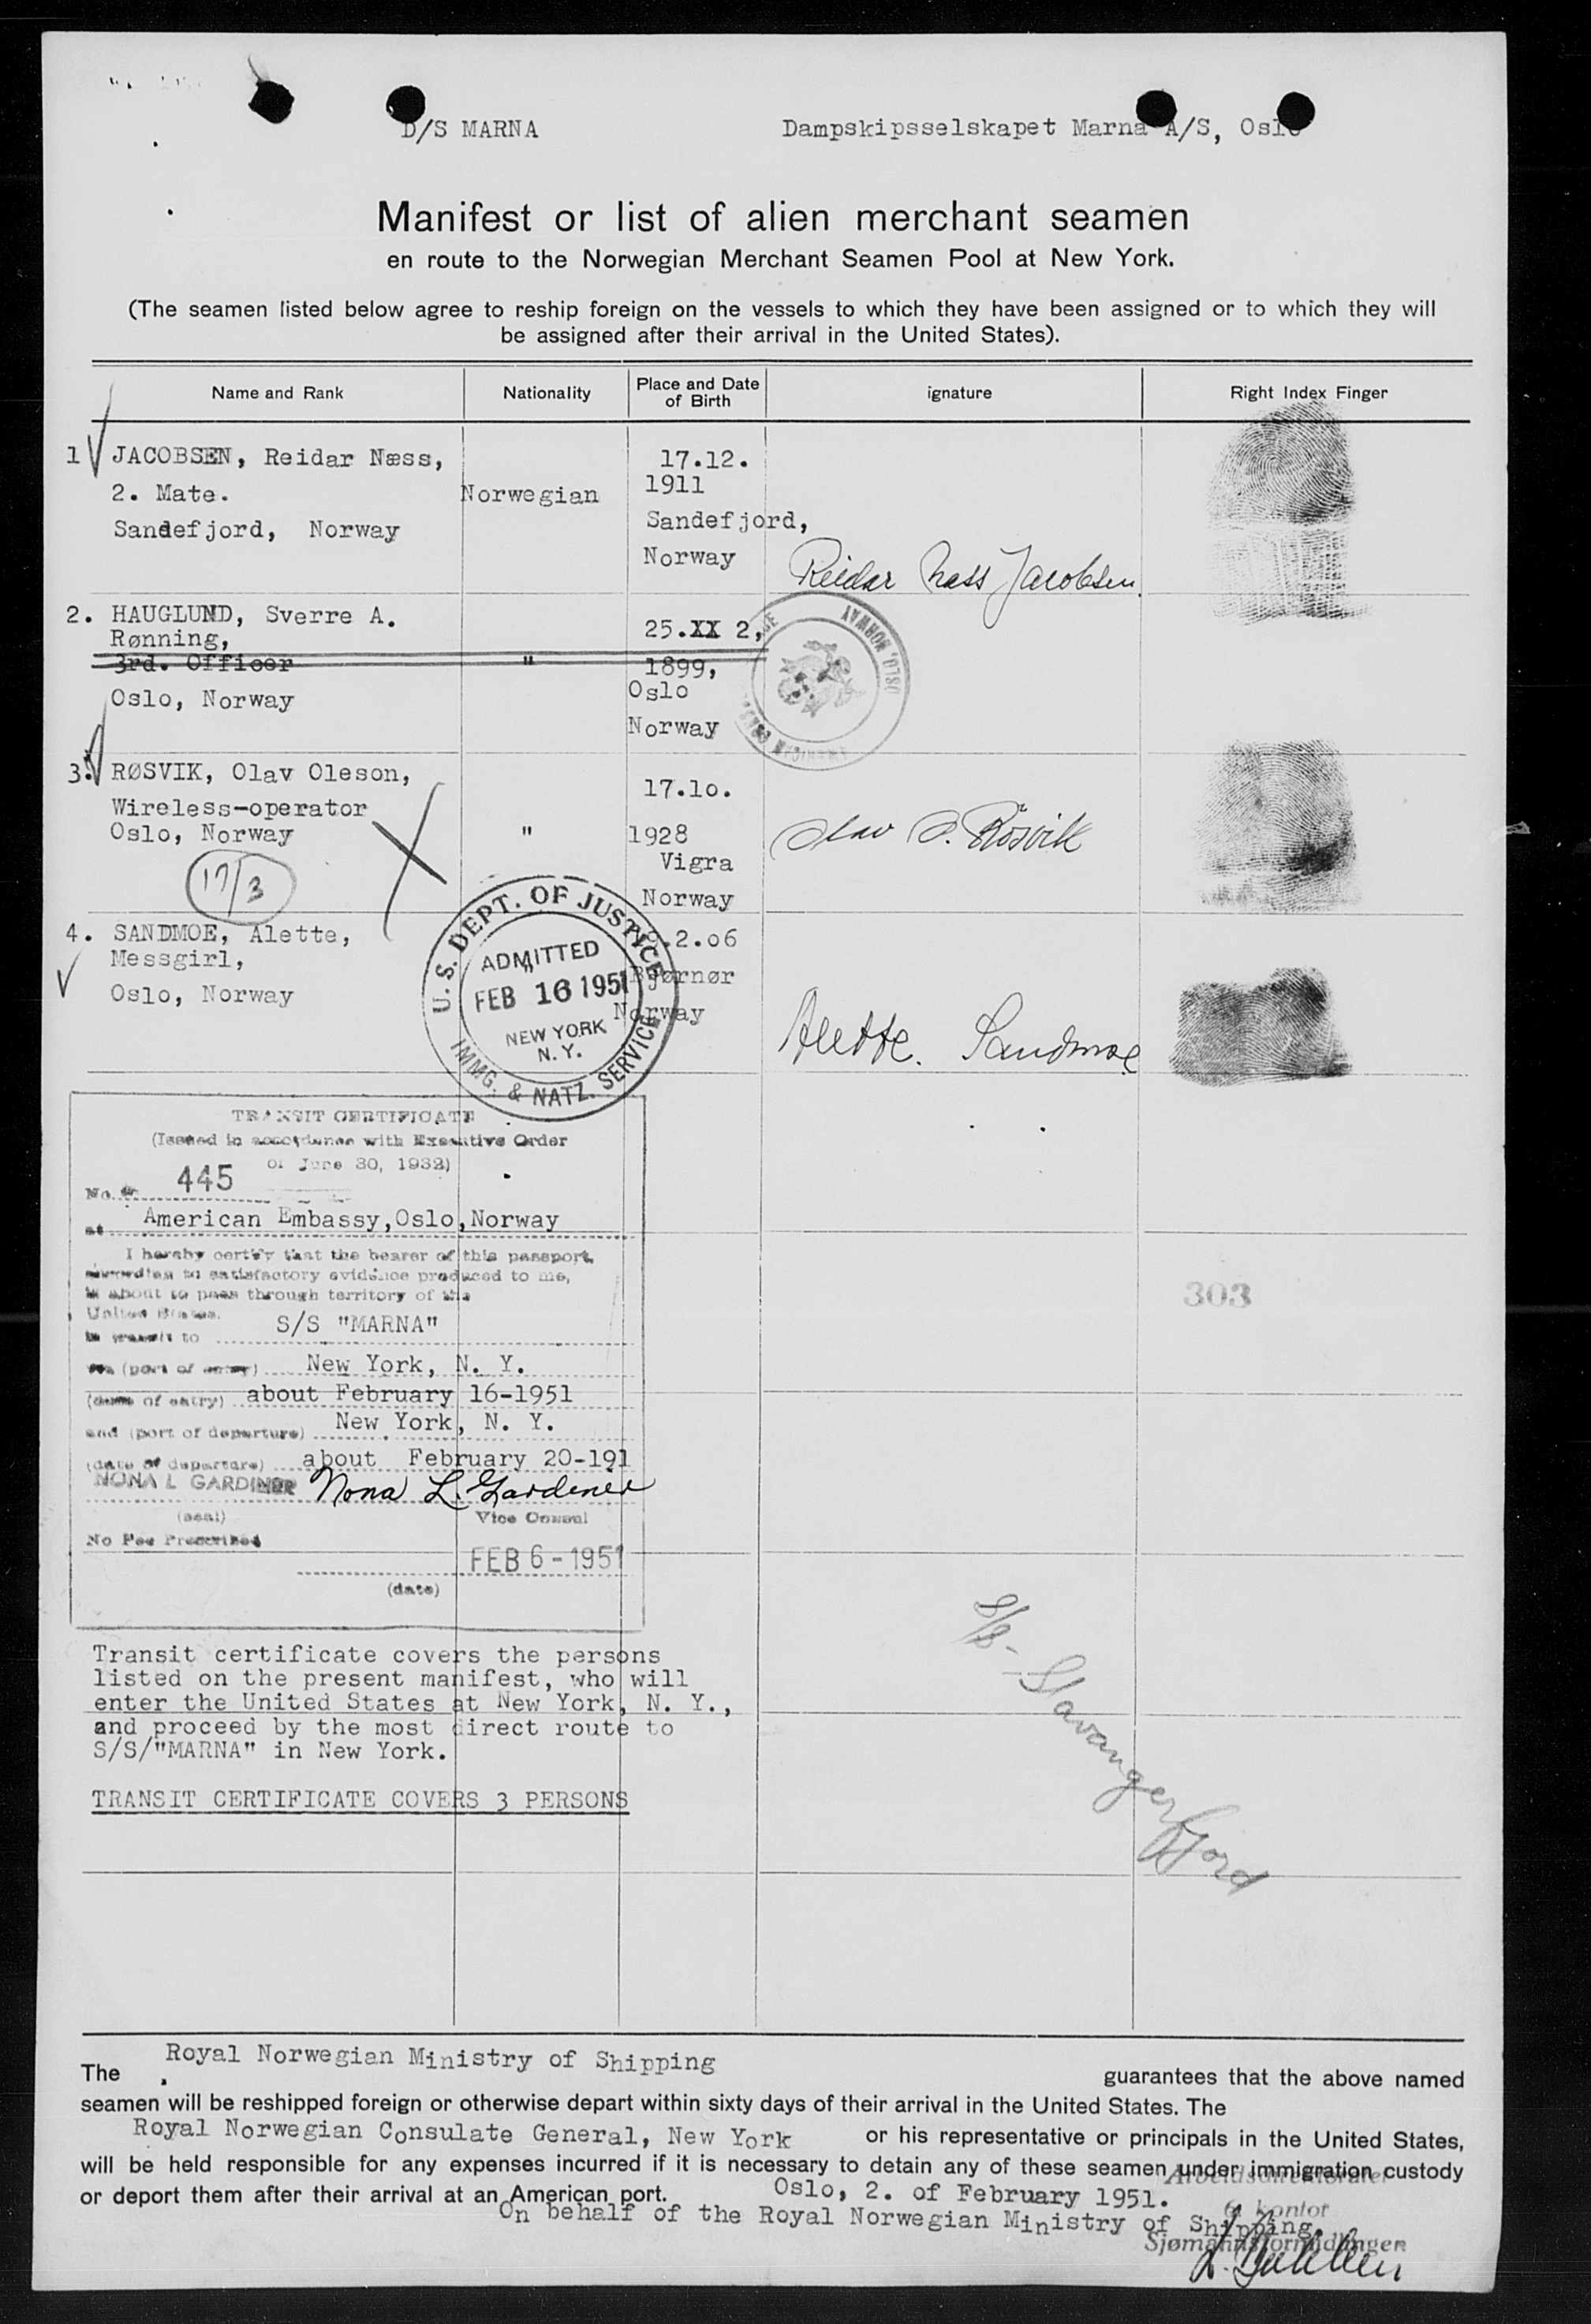 D/S MARNA Dampskipsselskapet Marna A/S, Oslo
Manifest or list of alien merchant seamen
en route to the Norwegian Merchant Seamen Pool at New York.
(The seamen listed below agree to reship foreign on the vessels to which they have been assigned or to which they will
be assigned after their arrival in the United States).
Name and Rank Nationality Place and Date of Birth ignature Right Index Finger
1 JACOBSEN, Reidar Næss, 17.12.
2. Mate. Norwegian 1911
Sandefjord, Norway Sandefjord,
Norway Reidar Næss Jacobsen.
2. HAUGLUND, Sverre A. 25.XX 2,
Rønning,
3rd. Officer " 1899,
Oslo, Norway Oslo
Norway
OSLO, NORWAY
3. RØSVIK, Olav Oleson, 17.10.
Wireless-operator
Oslo, Norway " 1928 Olav O. Røsvik
Vigra
17/3 Norway
4. SANDMOE, Alette, .2.06
Messgirl, " Bjørnør
Oslo, Norway Norway Alette. Sandmoe
U.S. DEPT. OF JUSTICE
ADMITTED
FEB 16 1951
NEW YORK
N. Y.
IMMG. & NATZ. SERVICE
TRANSIT CERTIFICATE
(Issued in accordance with Executive Order
of June 30, 1932)
No. 445
at American Embassy,Oslo,Norway
I hereby certify that the bearer of this passport,
according to satisfactory evidence produced to me,
is about to pass through territory of the
United States.
in transit to S/S "MARNA"
via (port of entry) New York, N. Y.
(date of entry) about February 16-1951
and (port of departure) New York, N. Y.
(date of departure) about February 20-191
NONA L GARDINER Nona L. Gardiner
(seal) Vice Consul
No Fee Prescribed
FEB 6 - 1951
(date)
303
Transit certificate covers the persons
listed on the present manifest, who will
enter the United States at New York, N. Y.,
and proceed by the most direct route to
S/S/"MARNA" in New York.
TRANSIT CERTIFICATE COVERS 3 PERSONS
S/S- Stavangerfjord
The Royal Norwegian Ministry of Shipping guarantees that the above named
seamen will be reshipped foreign or otherwise depart within sixty days of their arrival in the United States. The
Royal Norwegian Consulate General, New York or his representative or principals in the United States,
will be held responsible for any expenses incurred if it is necessary to detain any of these seamen under immigration custody
or deport them after their arrival at an American port. Oslo, 2. of February 1951.
On behalf of the Royal Norwegian Ministry of Shipping.
Arbeidsdirektoratet
6. kontor
Sjømannsformidlingen